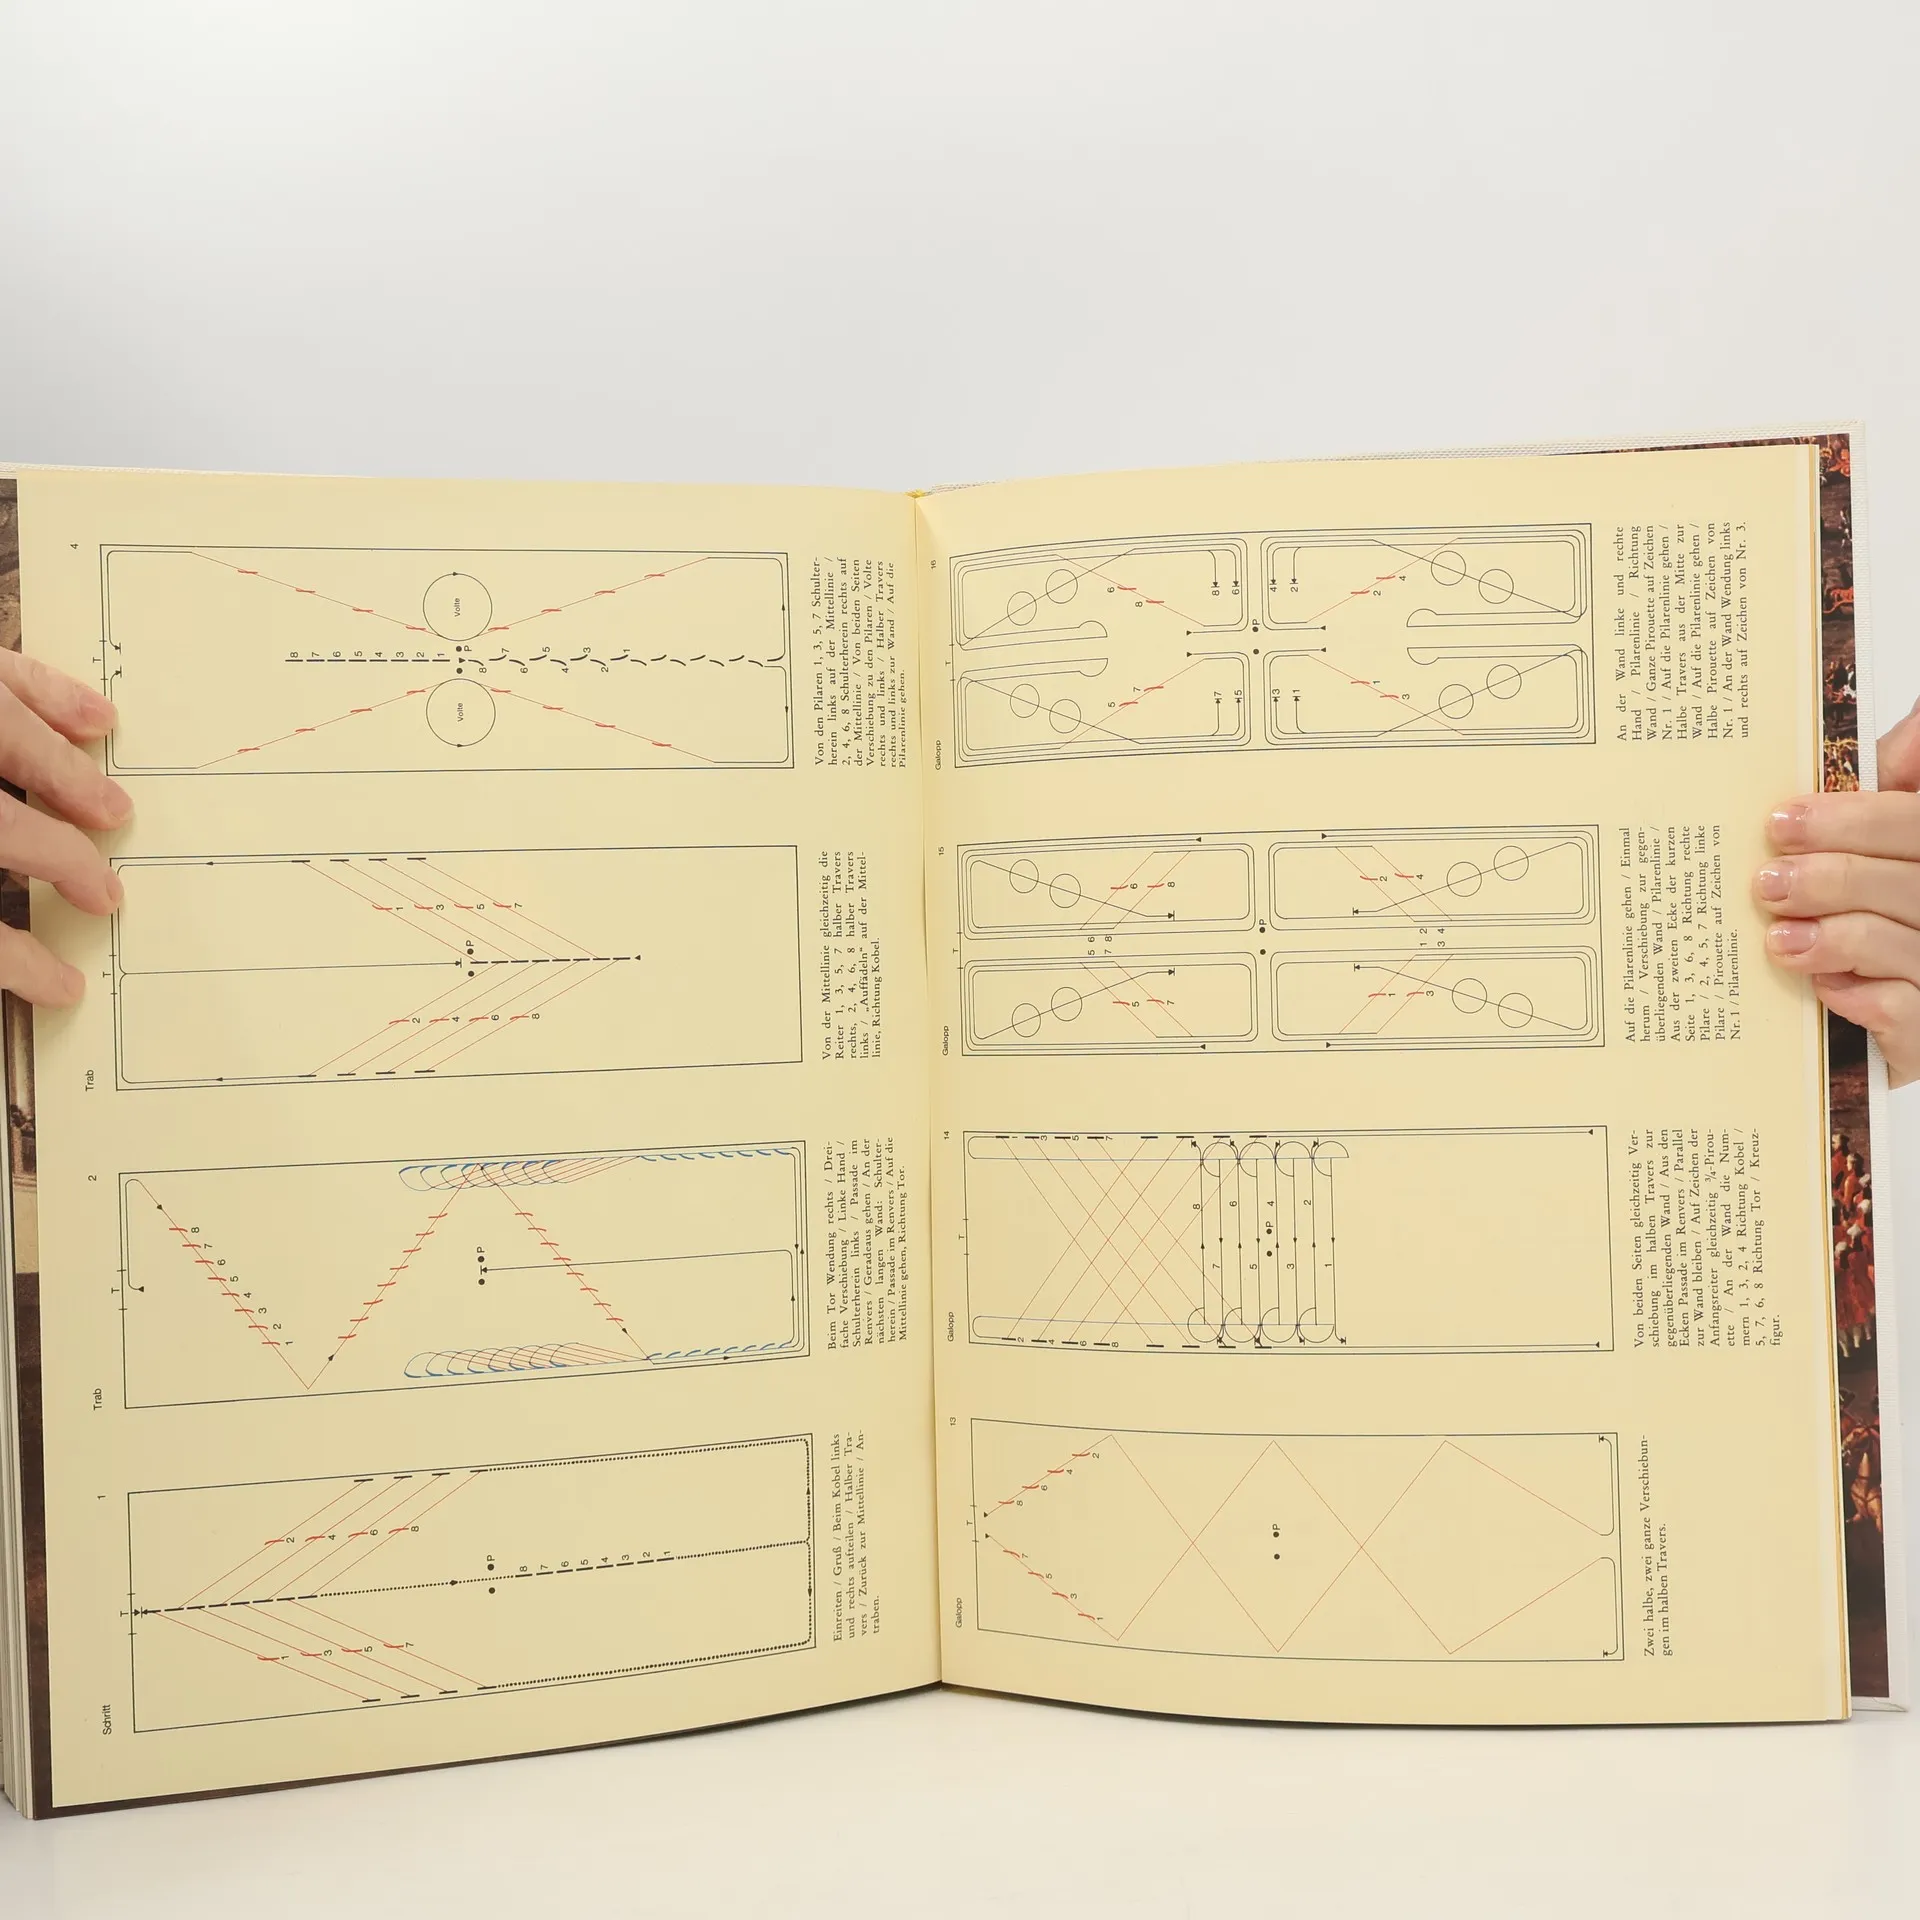 Schritt 1
T
1 3 5 7
2 4 6 8
P
8 7 6 5 4 3 2 1
Einreiten / Gruß / Beim Kobel links
und rechts aufteilen / Halber Tra-
vers / Zurück zur Mittellinie / An-
traben.
Trab 2
T
1 2 3 4 5 6 7 8
P
Beim Tor Wendung rechts / Drei-
fache Verschiebung / Linke Hand /
Schulterherein links / Passade im
Renvers / Geradeaus gehen / An der
nächsten langen Wand: Schulter-
herein / Passade im Renvers / Auf die
Mittellinie gehen, Richtung Tor.
Trab
T
2 4 6 8
P
1 3 5 7
Von der Mittellinie gleichzeitig die
Reiter 1, 3, 5, 7 halber Travers
rechts, 2, 4, 6, 8 halber Travers
links / „Auffädeln“ auf der Mittel-
linie, Richtung Kobel.
4
T
8 7 6 5 4 3 2 1
Volte
P
Volte
8 7 6 5 4 3 2 1
Von den Pilaren 1, 3, 5, 7 Schulter-
herein links auf der Mittellinie /
2, 4, 6, 8 Schulterherein rechts auf
der Mittellinie / Von beiden Seiten
Verschiebung zu den Pilaren / Volte
rechts und links / Halber Travers
rechts und links zur Wand / Auf die
Pilarenlinie gehen.
Galopp 13
T
1 3 5 7
8 6 4 2
P
Zwei halbe, zwei ganze Verschiebun-
gen im halben Travers.
Galopp 14
T
2 4 6 8
3 5 7
7 5 3 1
8 6 4 2
P
Von beiden Seiten gleichzeitig Ver-
schiebung im halben Travers zur
gegenüberliegenden Wand / Aus den
Ecken Passade im Renvers / Parallel
zur Wand bleiben / Auf Zeichen der
Anfangsreiter gleichzeitig ¾-Pirou-
ette / An der Wand die Num-
mern 1, 3, 2, 4 Richtung Kobel /
5, 7, 6, 8 Richtung Tor / Kreuz-
figur.
Galopp 15
T
5 7
6 8
5 6
7 8
P
1 2
3 4
1 3
2 4
Auf die Pilarenlinie gehen / Einmal
herum / Verschiebung zur gegen-
überliegenden Wand / Pilarenlinie /
Aus der zweiten Ecke der kurzen
Seite 1, 3, 6, 8 Richtung rechte
Pilare / 2, 4, 5, 7 Richtung linke
Pilare / Pirouette auf Zeichen von
Nr. 1 / Pilarenlinie.
Galopp 16
T
5 7
6 8
7 5 3 1
8 6 4 2
P
1 3
2 4
An der Wand linke und rechte
Hand / Pilarenlinie / Richtung
Wand / Ganze Pirouette auf Zeichen
Nr. 1 / Auf die Pilarenlinie gehen /
Halbe Travers aus der Mitte zur
Wand / Auf die Pilarenlinie gehen /
Halbe Pirouette auf Zeichen von
Nr. 1 / An der Wand Wendung links
und rechts auf Zeichen von Nr. 3.